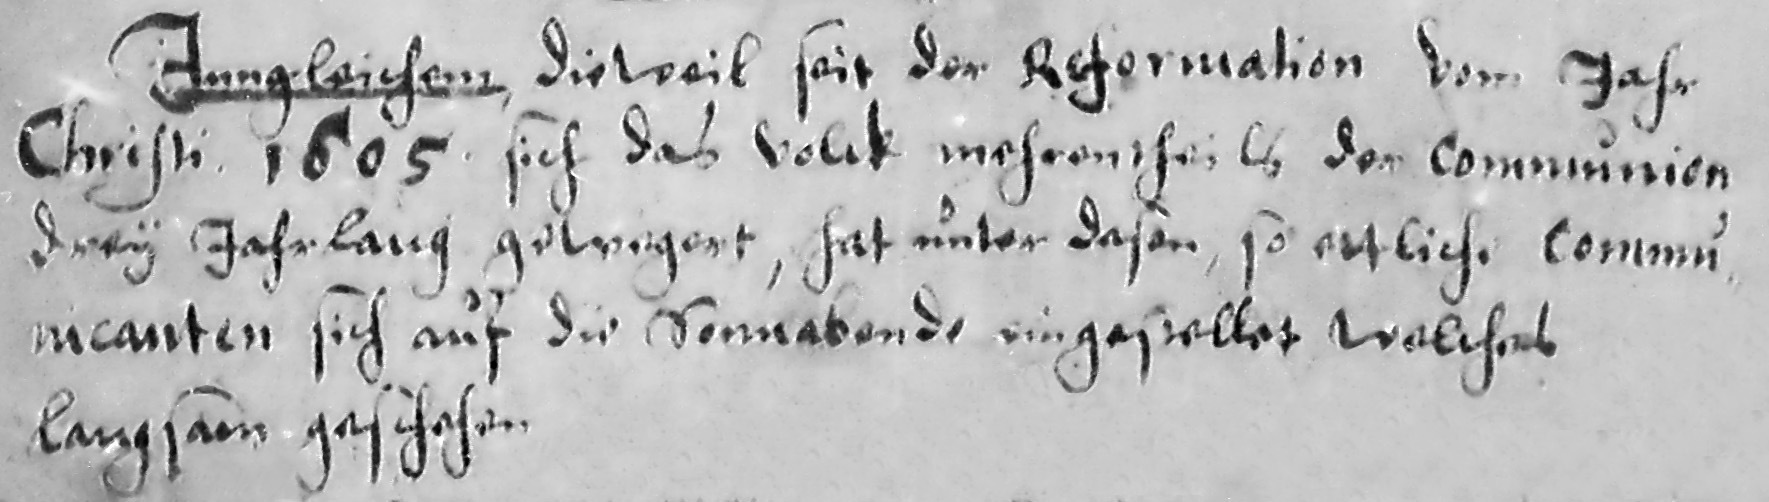 Inngleichem, dieweil seit der Reformation vom Jahr
Christi. 1605. sich das Volck mehrentheils der Communion
drey Jahr lang gewegert, hat unter dasen, so ettliche Commu,
nicanten sich auf die Sonnabende eingestellet welches
langsam geschehen